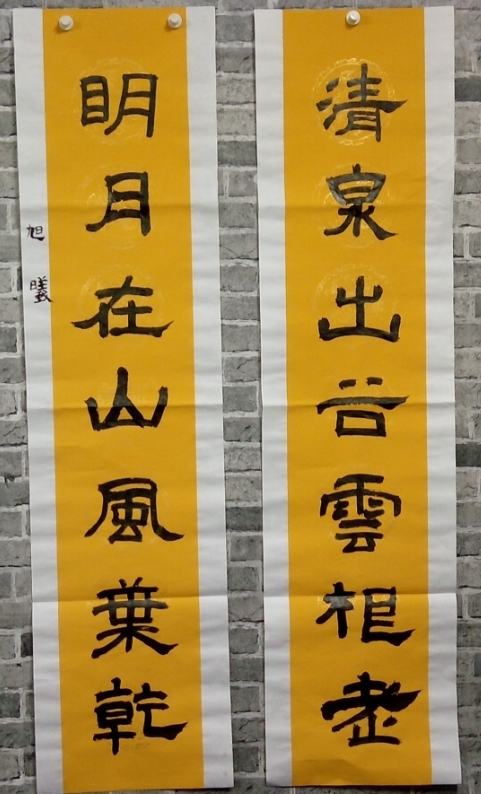 清泉出谷雲根老
明月在山風葉乾
旭曦